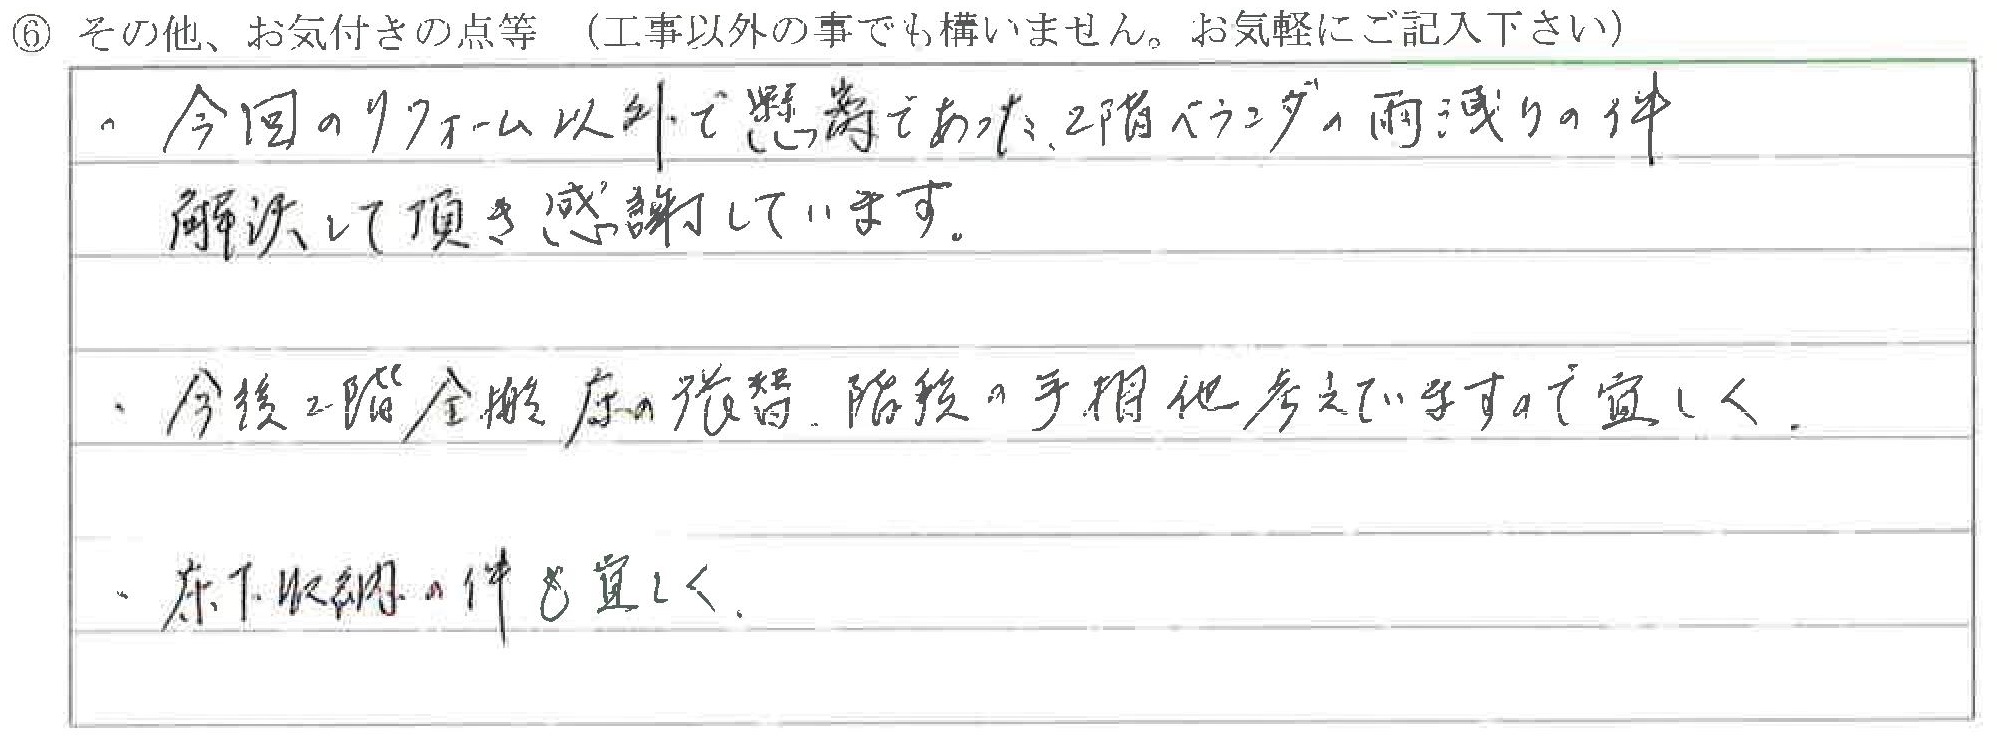 ⑥ その他、お気付きの点等 （工事以外の事でも構いません。お気軽にご記入下さい）
・今回のリフォーム以外で懸案であった、2階ベランダの雨洩りの件
解決して頂き感謝しています。
・今後2階全般床の張替、階段の手摺他考えていますので宜しく.
・床下収納の件も宜しく.